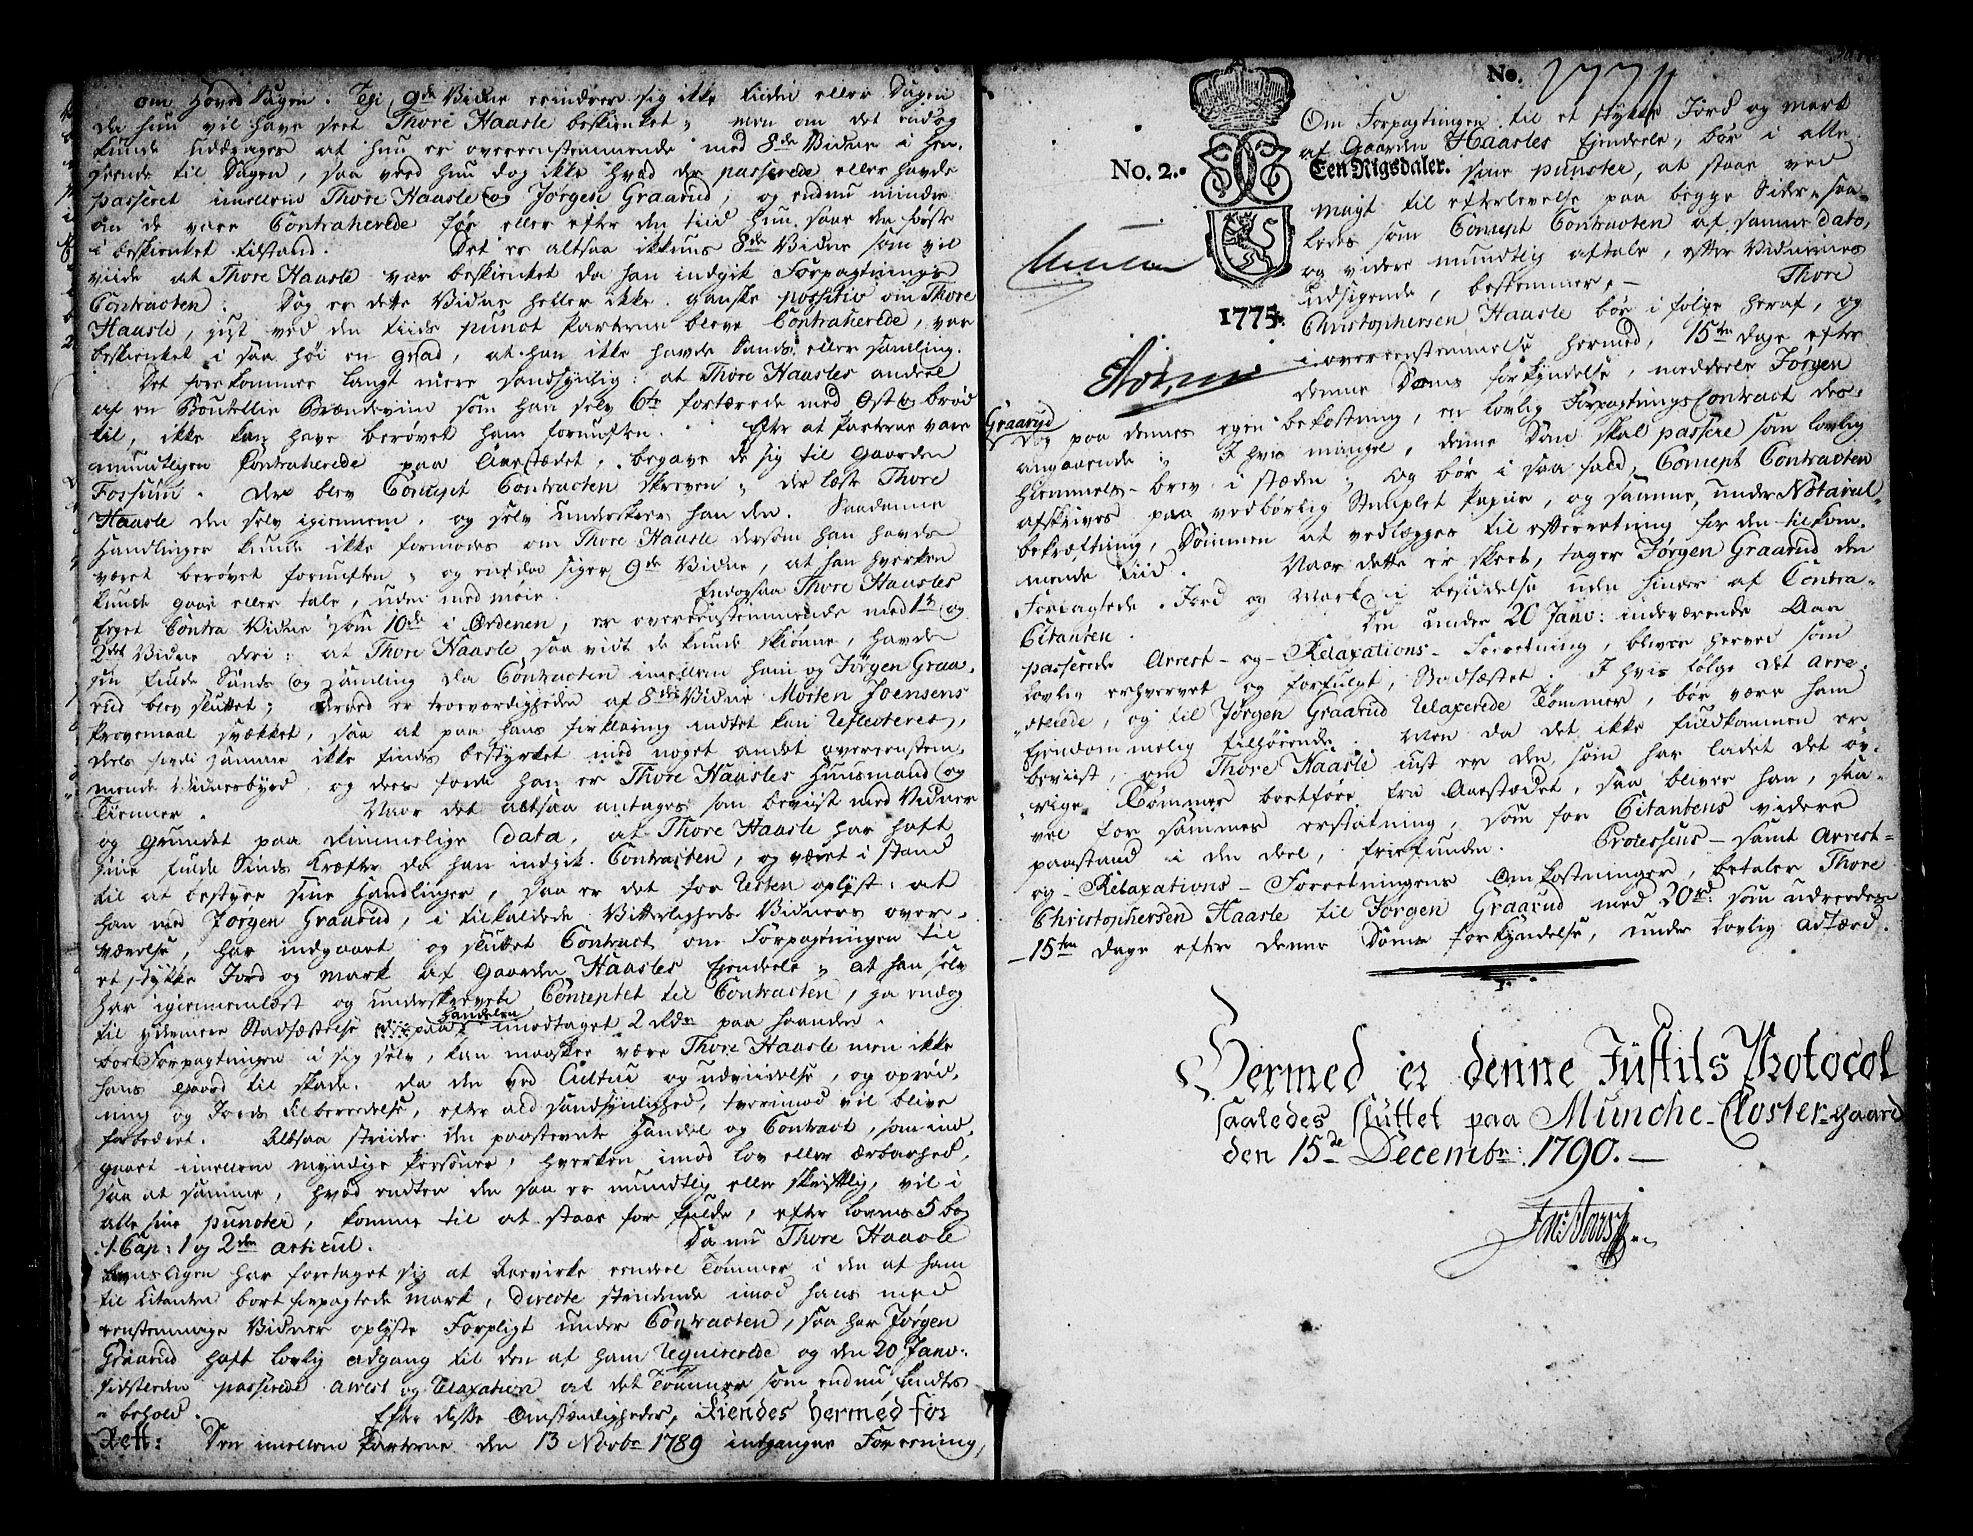 om Hoved Sagen. Thj 9de Vidne erindrer sig ikke Tiden eller Dagen
da hun vil have seet Thore Haasle beskienket; men om det endog
kunde uddrages at hun er overeenstemmende med 8de Vidne i hen-
seende til Dagen, saa veed hun dog ikke hvad der passerede eller havde
passeret imellem Thore Haasle og Jørgen Graarud, og endnu mindre
om de vare Contraherede før eller efter den tiid hun saae den første
i beskienket tilstand. Det er altsaa ikkuns 8de Vidne som vil
viide at Thore Haasle var beskienket da han indgik Forpagtnings
Contracten: Dog er dette Vidne heller ikke ganske positiv om Thore
Haasle, just ved den tiids punct Parterne bleve Contraherede, var
beskienket i saa høi en grad, at han ikke havde Sands eller samling.
Det forekommer langt mere sandsynlig: at Thore Haasles andeel
af en Boutellie Brændeviin som han selv 6te fortærede med Ost og brød
til, ikke kan have berøvet ham fornuften. Efter at Parterne vare
mundtligen Contraherede paa Aastædet, begave de sig til Gaarden
Fossum. Der blev Concept Contracten skreven; der læste Thore
Haasle den selv igiennem, og selv underskrev han den. Saadanne
Handlinger kunde ikke formodes om Thore Haasle dersom han havde
været berøvet fornuften, og endda siger 9de Vidne, at han hverken
kunde gaae eller tale, uden med møie. Endogsaa Thore Haasles
Eget Contra Vidne som 10de i Ordenen, er overeenstemmende med 1te og
2det Vidne deri: at Thore Haasle saa vidt de kunde skiønne, havde
sin fulde Sands og samling da Contracten imellem ham og Jørgen Graa-
rud blev sluttet; Derved er troeværdigheden af 8de Vidne Morten Joensens
Provemaal svækket, saa at paa hans forklaring indtet kan reflecteres,
deels fordi samme ikke findes bestyrket med noget andet overeenstem-
mende Vidnesbyrd og deels fordi han er Thore Haasles Huusmand og
Tienner. Naar det altsaa antages som beviist med Vidner
og grundet paa rimmelige data, at Thore Haasle har haft
sine fulde Sinds kræfter da han indgik Contracten, og været i stand
til at bestyre sine Handlinger, saa er det for Retten oplyst: at
han med Jørgen Graarud, i tilkaldede Vitterligheds Vidners over-
værelse, har indgaaet og sluttet Contract om Forpagtningen til
et stykke Jord og mark af Gaarden Haasles Ejendeele; at han selv
har igiennemlæst og underskrevet Conceptet til Contracten, ja endog
til ydermere Stadfæstelse paa handelen imodtaget 2 Rdr paa haanden.
bortForpagtningen i sig selv, kan maaskee være Thore Haasle men ikke
hans Gaard til skade. da den ved Cultur og udviidelse, og opryd-
ning og Jords tilberedelse, efter all sandsynlighed, tvertimod vil blive
forbedret. Altsaa striider den paastevnte Handel og Contract, som ind-
gaaet imellem myndige Personer, hverken imod lov eller ærbarhed,
saa at samme, hvad endten den saa er mundtlig eller skriftlig, vil i
alle sine puncter, komme til at staae for fulde, efter lovens 5 bog
1 Cap: 1 og 2den articul. Da nu Thore Haasle
har foretaget sig at Aavirke eendeel Tømmer i den af ham
til Citanten bort forpagtede mark, directe stridende imod hans med
eenstemmige Vidner oplyste Forpligt under Contracten, saa har Jørgen
Graarud haft lovlig adgang til den af ham requirerede og den 20 Janv:
sidstleden passerede arrest og relaxation af det Tømmer som endnu fandtes
i behold. Efter disse Omstændigheder, Kiendes hermed for
Rett: Den imellem Parterne den 13 Novbr 1789 indgangne Foreening,
No. 2.
No. 1774
Een Rigsdaler.
1775.
Om Forpagtningen til et stykke Jord og mark
af Gaarden Haasles Ejendeele, bør i alle
sine puncter, at staae ved
magt til efterlevelse paa begge Sider, saa-
ledes som Concept Contracten af samme dato,
og videre mundtlig aftale, efter Vidnernes
udsigende, bestemmer. – Thore
Christophersen Haasle bør i følge heraf, og
i overeenstemmelse hermed, 15ten dage efter
denne Doms forkyndelse, meddeele Jørgen
Graarud
Dog paa dennes egen bekostning, en lovlig Forpagtnings Contract des-
angaaende; I hvis mangel, denne Dom skal passere som lovlig
Hiemmels-brev i stæden; og bør i saa fald, Concept Contracten
afskrives paa vedbørlig Stemplet Papiir, og samme, under Notarial-
bekræftning, Dommen at vedlægges til efterretning for den tilkom-
mende tiid. Naar dette er skeet, tager Jørgen Graarud den
Forpagtede Jord og mark i besiddelse uden hinder af Contra-
Citanten. Den under 20 Janv: indeværende Aar
passerede Arrest- og -Relaxations- Forretning, bliver herved som
lovlig erhvervet og forfulgt, Stadfæstet. I hvis følge det arre-
sterede, og til Jørgen Graarud relaxerede Tømmer, bør være ham
Ejendommelig tilhørende. Men da det ikke fuldkommen er
beviist, om Thore Haasle just er den, som har ladet det øv-
rige Tømmer bortføre fra Aastædet, saa bliver han, saa-
vel for sammes erstatning, som for Citantens videre
paastand i den deel, friefunden. Processens- samt Arrest-
og -Relaxations- Forretningens Omkostninger, betaler Thore
Christophersen Haasle til Jørgen Graarud med 20 rd: som udreedes
15ten dage efter denne Doms forkyndelse, under lovlig adfærd.
Hermed er denne Justits Protocol
saaledes sluttet paa Munche-Closter-gaard
den 15de Decembr: 1790. –